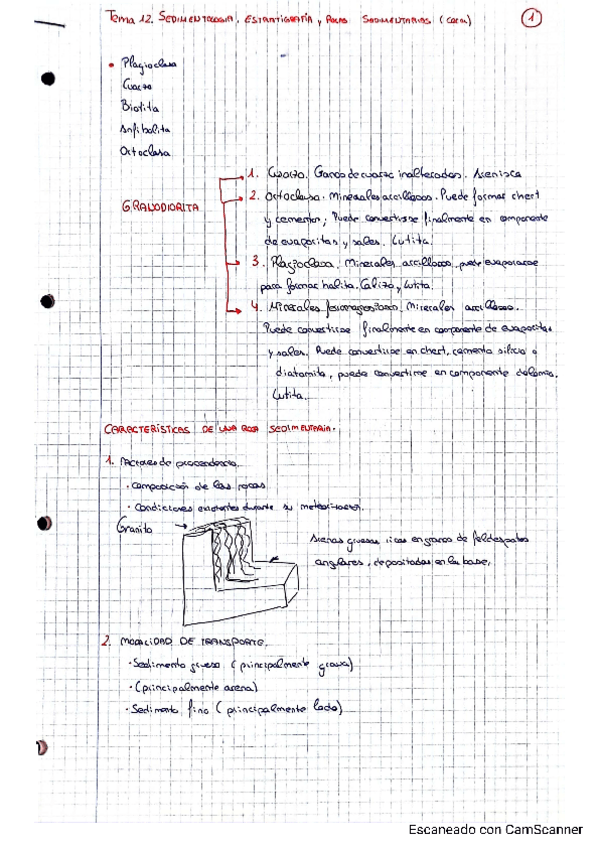 Tema 12. SEDIMENTOLOGIA, ESTRATIGRAFÍA y ROCAS SEDIMENTARIAS (cara) 1
• Plagioclasa
Cuarzo
Biotita
Anfibolita
Octoclasa
GRANODIORITA
1. Cuarzo. Granos de cuarzo inalterados. Arenisca
2. Octoclasa. Minerales arcillosos. Puede formar chert
y cementor; Puede convertirse finalmente en componente
de evaporitas y sales. Lutita.
3. Plagioclasa. Minerales arcillosos, puede evaporarse
para formar halita. Caliza y Lutita.
4. Minerales ferromagnesianos. Minerales arcillosos.
Puede convertirse finalmente en componente de evaporitas
y sales. Puede convertirse en chert, cemento silicio o
diatomita, puede convertirse en componente dolomia.
Lutita.
CARACTERÍSTICAS DE UNA ROCA SEDIMENTARIA.
1. Factores de procedencia.
· Composición de las rocas
· Condiciones existentes durante su meteorización.
Granito
Arenas gruesas ricas en granos de feldespatos
angulares, depositadas en la base.
2. MODALIDAD DE TRANSPORTE.
· Sedimento grueso (principalmente grava)
· (principalmente arena)
· Sedimento fino (principalmente lodo)
Escaneado con CamScanner